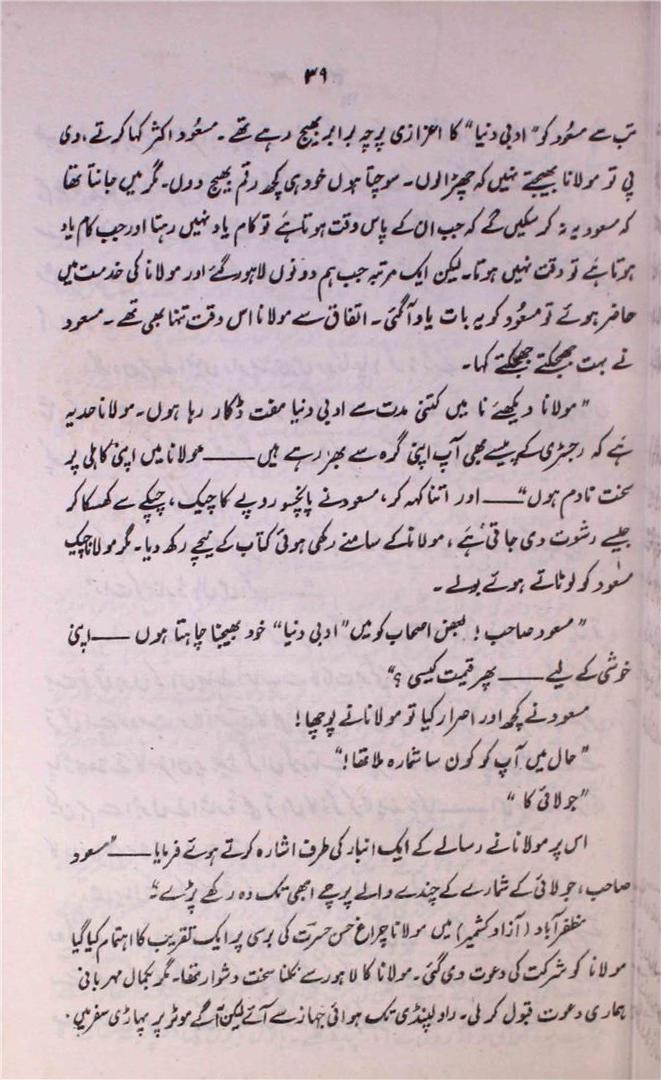 ۳۹
تب سے مسعود کو "ادبی دنیا" کا اعزازی پرچہ برابر بھیج رہے تھے۔ مسعود اکثر کہا کرتے، وی
پی تو مولانا بھیجتے نہیں کہ چھڑا لوں۔ سوچتا ہوں خود ہی کچھ رقم بھیج دوں۔ مگر میں جانتا تھا
کہ مسعود یہ نہ کر سکیں گے کہ جب ان کے پاس وقت ہوتا ہے تو کام یاد نہیں رہتا اور جب کام یاد
ہوتا ہے تو وقت نہیں ہوتا۔ لیکن ایک مرتبہ جب ہم دونوں لاہور گئے اور مولانا کی خدمت میں
حاضر ہوئے تو مسعود کو یہ بات یاد آ گئی۔ اتفاق سے مولانا اس وقت تنہا بھی تھے۔ مسعود
نے بہت جھجکتے جھجکتے کہا۔
"مولانا دیکھئے نا میں کتنی مدت سے ادبی دنیا مفت ڈکار رہا ہوں۔ مولانا حد یہ
ہے کہ رجسٹری کے پیسے بھی آپ اپنی گرہ سے بھر رہے ہیں —— مولانا میں اپنی کاہلی پر
سخت نادم ہوں" —— اور اتنا کہہ کر، مسعود نے پانچسو روپے کا چیک، چپکے سے کھسکا کر
جیسے رشوت دی جاتی ہے، مولانا کے سامنے رکھی ہوئی کتاب کے نیچے رکھ دیا۔ مگر مولانا چیک
مسعود کو لوٹاتے ہوئے بولے۔
"مسعود صاحب! بعض اصحاب کو میں "ادبی دنیا" خود بھیجنا چاہتا ہوں —— اپنی
خوشی کے لیے —— پھر قیمت کیسی؟"
مسعود نے کچھ اور اصرار کیا تو مولانا نے پوچھا!
"حال میں آپ کو کون سا شمارہ ملا تھا!"
"جولائی کا"
اس پر مولانا نے رسالے کے ایک انبار کی طرف اشارہ کرتے ہوئے فرمایا —— "مسعود
صاحب، جولائی کے شمارے کے چندے والے پرچے ابھی تک وہ رکھے پڑے"
مظفر آباد (آزاد کشمیر) میں مولانا چراغ حسن حسرت کی برسی پر ایک تقریب کا اہتمام کیا گیا
مولانا کو شرکت کی دعوت دی گئی۔ مولانا کا لاہور سے نکلنا سخت دشوار تھا۔ مگر بکمال مہربانی
ہماری دعوت قبول کر لی۔ راولپنڈی تک ہوائی جہاز سے آئے لیکن آگے موٹر پر پہاڑی سفر میں۔